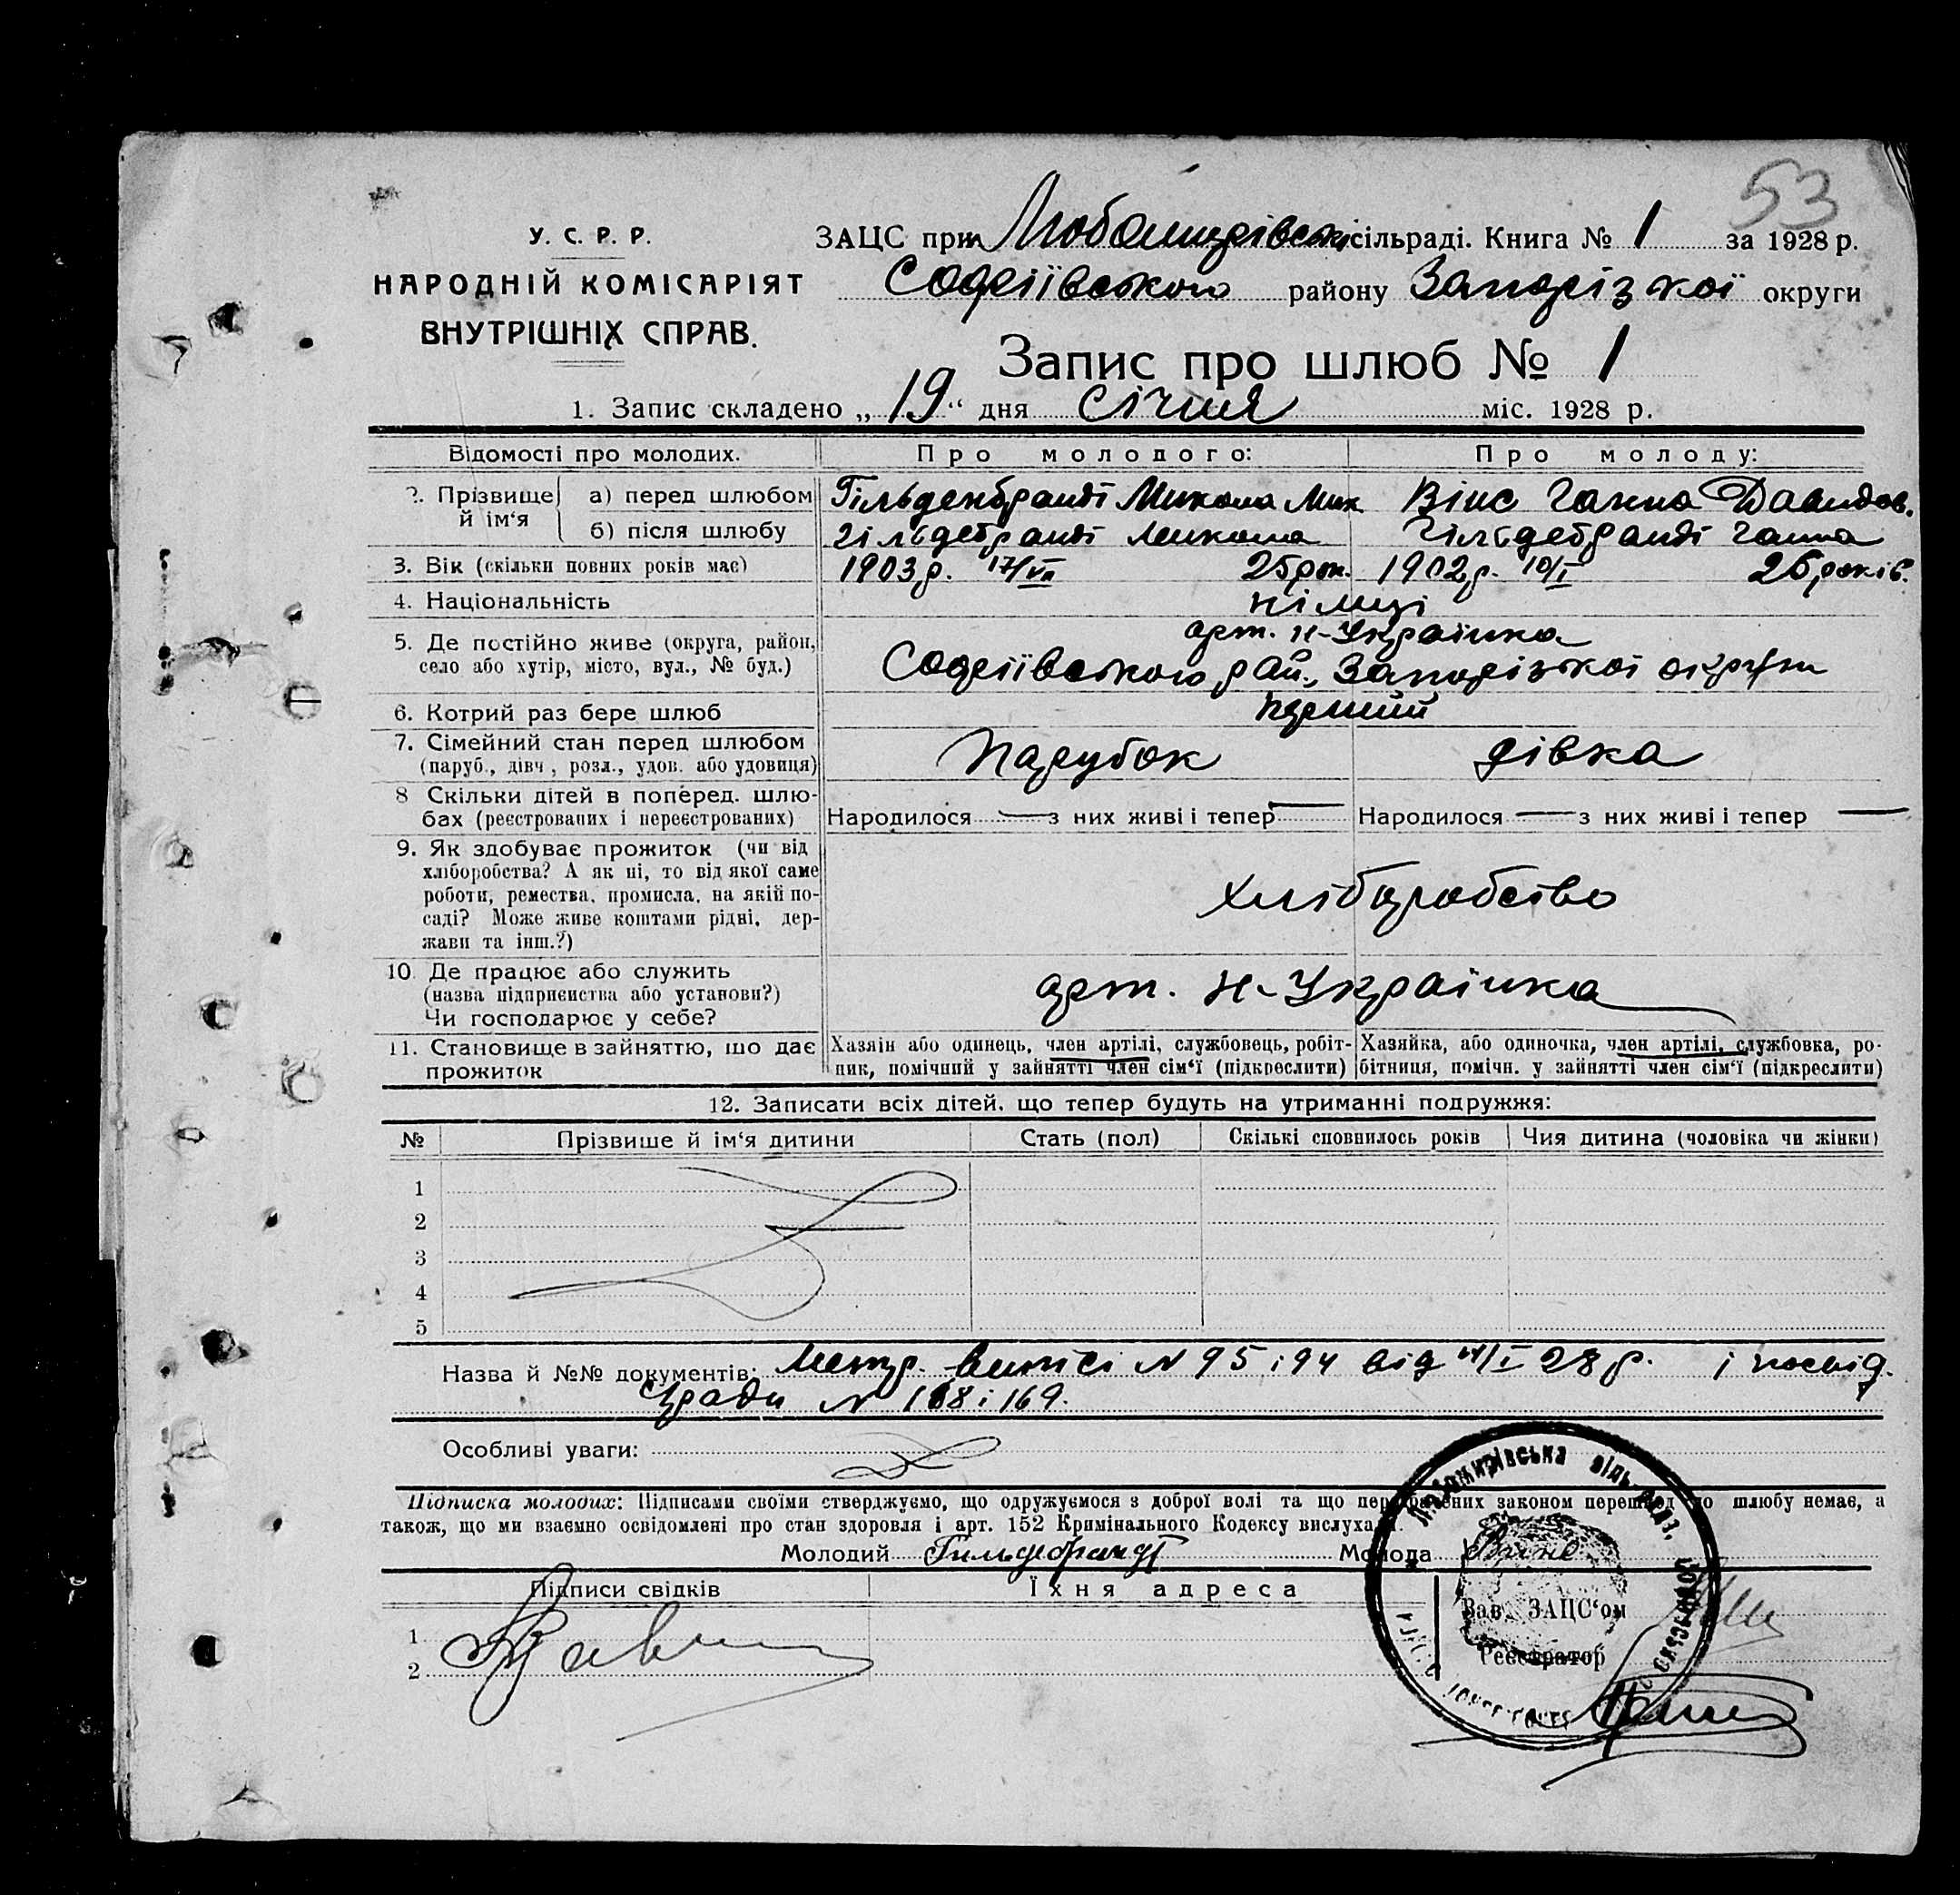 53
У. С. Р. Р.
НАРОДНІЙ КОМІСАРІЯТ
ВНУТРІШНІХ СПРАВ.
ЗАЦС при Любомирівськ. сільраді. Книга № 1 за 1928 р.
Софіївського району Запорізької округи
Запис про шлюб № 1
1. Запис складено „ 19 “ дня січня міс. 1928 р.
Відомості про молодих. Про молодого: Про молоду:
2. Прізвище й ім‘я а) перед шлюбом Гільденбрандт Микола Мик Вінс Ганна Давидов.
б) після шлюбу Гільдебрандт Микола Гільдебрандт Ганна
3. Вік (скільки повних років має) 1903 р. 17/VII 25 рок. 1902 р. 10/I 26 років.
4. Національність німці
5. Де постійно живе (округа, район, село або хутір, місто, вул., № буд.) арт. Н-Українка
Софіївського рай., Запорізької округи
6. Котрий раз бере шлюб перший
7. Сімейний стан перед шлюбом (паруб., дівч., розл., удов. або удовиця) парубок дівка
8 Скільки дітей в поперед. шлюбах (реєстрованих і нереєстрованих) Народилося — з них живі і тепер — Народилося — з них живі і тепер —
9. Як здобуває прожиток (чи від
хліборобства? А як ні, то від якої саме
роботи, ремества, промисла, на якій по-
саді? Може живе коштами рідні, дер-
жави та інш.?) хліборобство
10. Де працює або служить
(назва підприємства або установи?)
Чи господарює у себе? арт. Н-Українка
11. Становище в зайняттю, що дає прожиток
Хазяїн або одинець, член артілі, службовець, робіт-
ник, помічний у зайнятті член сім‘ї (підкреслити)
Хазяйка, або одиночка, член артілі, службовка, ро-
бітниця, помічн. у зайнятті член сім‘ї (підкреслити)
12. Записати всіх дітей, що тепер будуть на утриманні подружжя:
№ Прізвище й ім‘я дитини Стать (пол) Скількі сповнилось років Чия дитина (чоловіка чи жінки)
1
2
3
4
5
Назва й №№ документів: Метр. витісі N 95 і 94 від 14/I 28 р. і посвід.
с/ради N 168 і 169.
Особливі уваги:
Підписка молодих: Підписами своїми стверджуємо, що одружуємося з доброї волі та що передбачених законом перешкод до шлюбу немає, а
також, що ми взаємно освідомлені про стан здоровля і арт. 152 Кримінального Кодексу вислухали.
Молодий Гильдебрандт Молода Винс
Підписи свідків Їхня адреса
1
2
Зав. ЗАЦС‘ом
Реєстратор
Любомирівська сільрада,